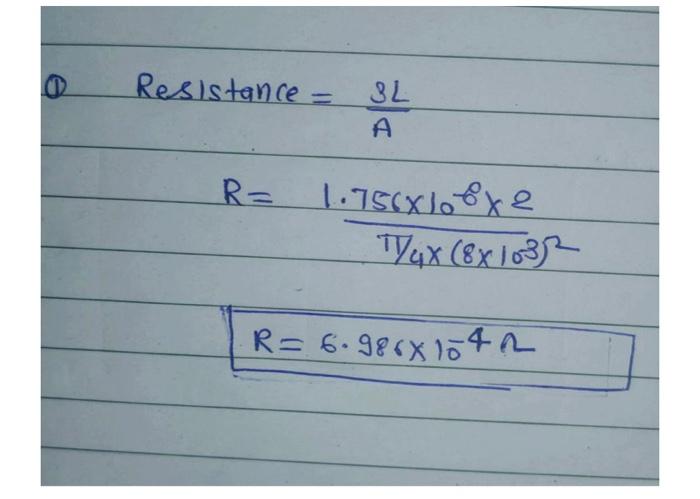 ① Resistance = SL/A
R = 1.756×10⁻⁸ × 2 / π/4 × (8×10⁻³)²
R = 6.986×10⁻⁴ Ω